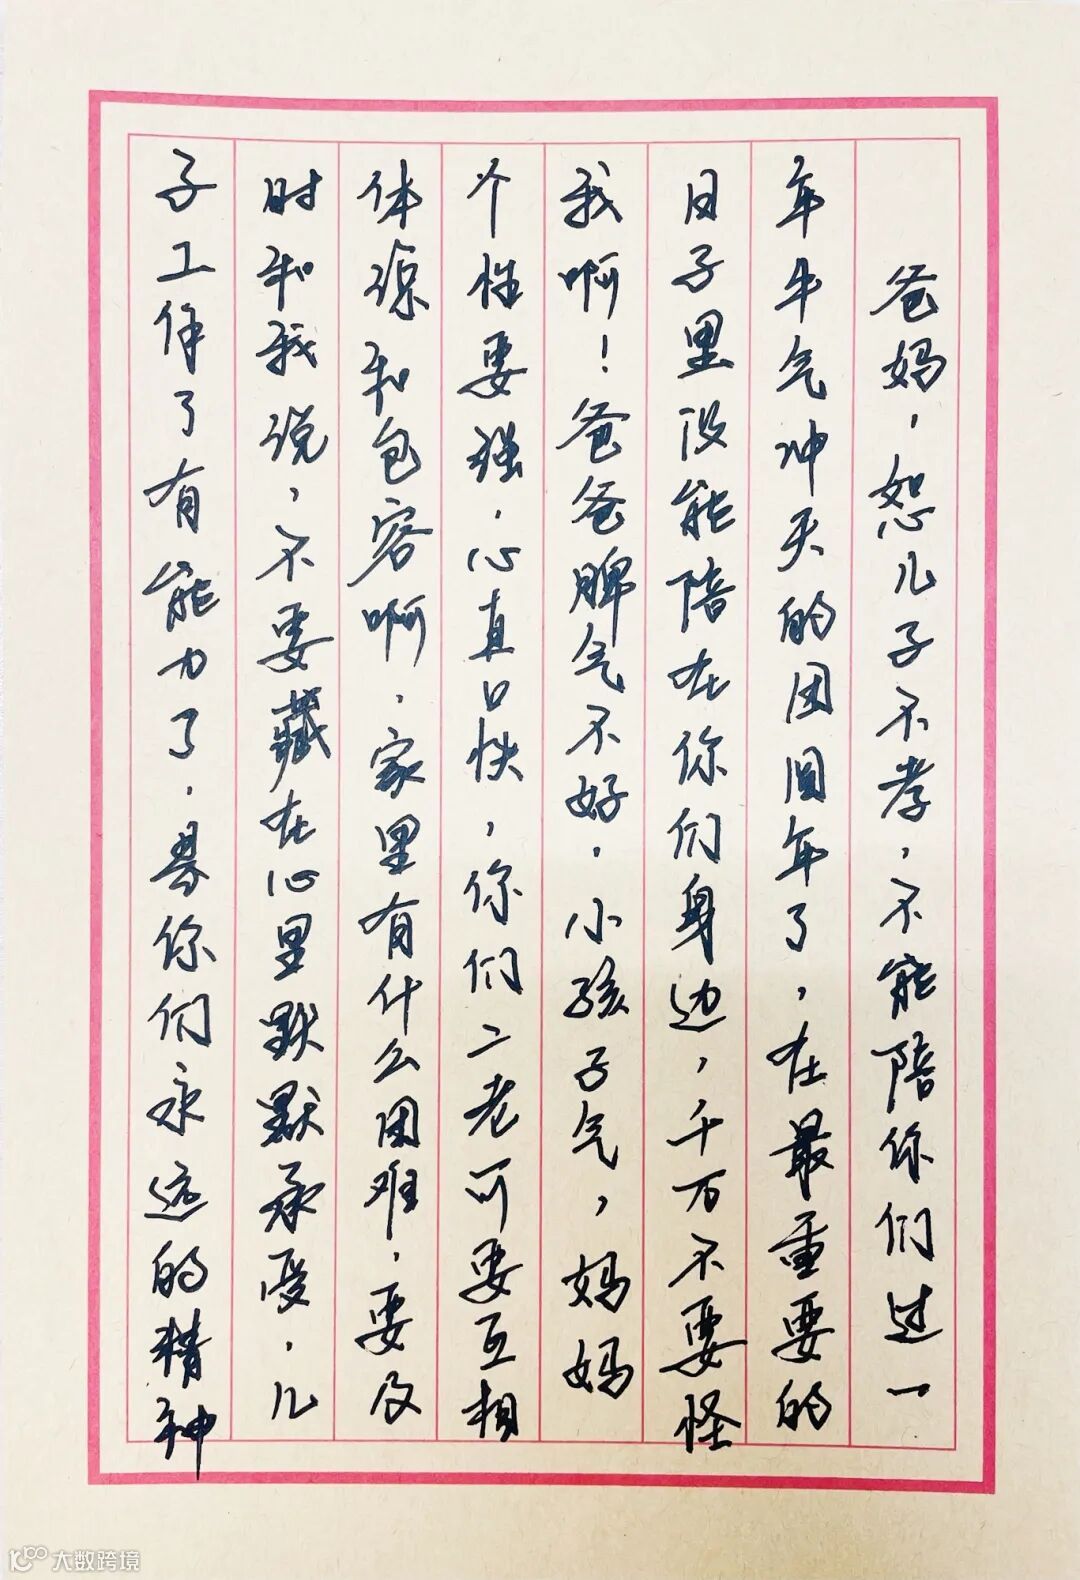 爸妈，恕儿子不孝，不能陪你们过一
年牛气冲天的团圆年了，在最重要的
日子里没能陪在你们身边，千万不要怪
我啊！爸爸脾气不好，小孩子气，妈妈
个性要强，心直口快，你们二老可要互相
体谅和包容啊，家里有什么困难，要及
时和我说，不要藏在心里默默承受，儿
子工作了有能力了，是你们永远的精神
大数跨境